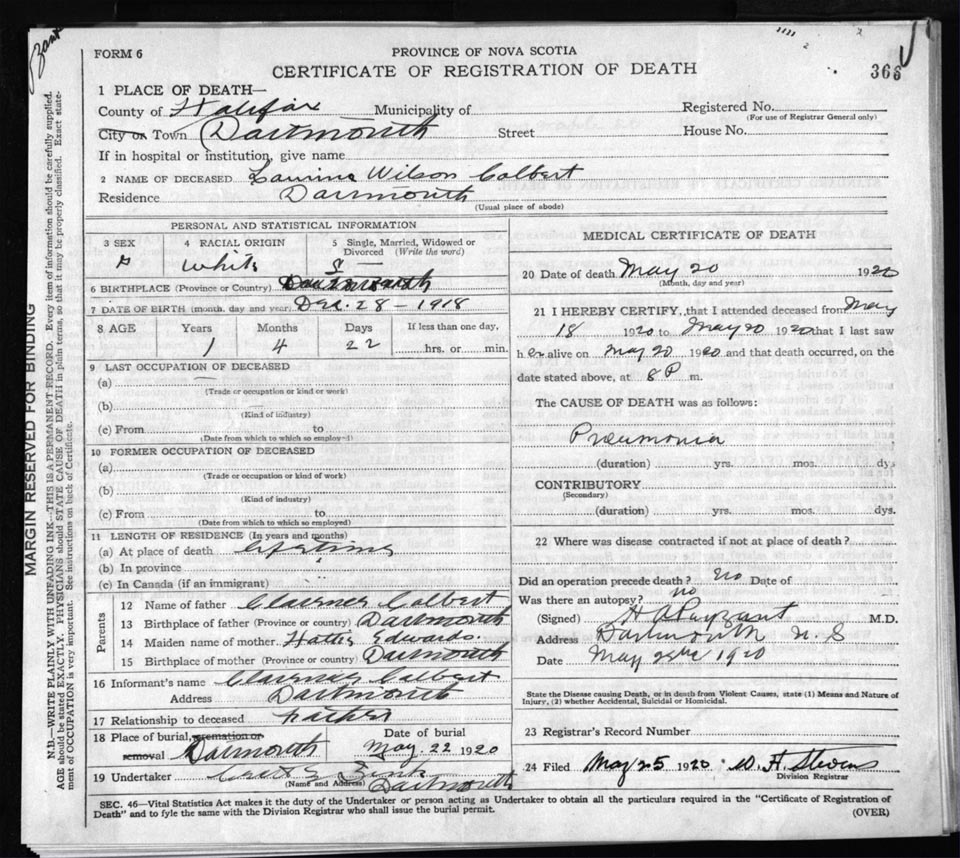 FORM 6
PROVINCE OF NOVA SCOTIA
CERTIFICATE OF REGISTRATION OF DEATH
366
1 PLACE OF DEATH—
County of Halifax Municipality of Registered No.
(For use of Registrar General only)
City or Town Dartmouth Street House No.
If in hospital or institution, give name
2 NAME OF DECEASED Wilson Colbert
Residence Dartmouth
(Usual place of abode)
PERSONAL AND STATISTICAL INFORMATION
3 SEX 4 RACIAL ORIGIN 5 Single, Married, Widowed or Divorced (Write the word)
White S
6 BIRTHPLACE (Province or Country) Dartmouth
7 DATE OF BIRTH (month, day and year) Dec. 28 - 1918
8 AGE Years Months Days If less than one day,
1 4 22 hrs. or min.
9 LAST OCCUPATION OF DECEASED
(a) —
(Trade or occupation or kind or work)
(b)
(Kind of industry)
(c) From to
(Date from which to which so employed)
10 FORMER OCCUPATION OF DECEASED
(a)
(Trade or occupation or kind of work)
(b)
(Kind of industry)
(c) From to
(Date from which to which so employed)
11 LENGTH OF RESIDENCE (In years and months)
(a) At place of death lifetime
(b) In province
(c) In Canada (if an immigrant)
Parents
12 Name of father Colbert
13 Birthplace of father (Province or country) Dartmouth
14 Maiden name of mother Hattie Edwards.
15 Birthplace of mother (Province or country) Dartmouth
16 Informant's name Colbert
Address Dartmouth
17 Relationship to deceased Father
18 Place of burial, cremation or removal Dartmouth
Date of burial
May. 22 1920
19 Undertaker
(Name and Address) Dartmouth
MEDICAL CERTIFICATE OF DEATH
20 Date of death May 20 1920
(Month, day and year)
21 I HEREBY CERTIFY, that I attended deceased from May
18 1920 to May 20 1920 that I last saw
h er alive on May 20 1920 and that death occurred, on the
date stated above, at 8 P m.
The CAUSE OF DEATH was as follows:
Pneumonia
(duration) yrs. mos. dys
CONTRIBUTORY
(Secondary)
(duration) yrs. mos. dys.
22 Where was disease contracted if not at place of death?
Did an operation precede death? no Date of
Was there an autopsy? no
(Signed) M.D.
Address Dartmouth N. S
Date May 1920
State the Disease causing Death, or in death from Violent Causes, state (1) Means and Nature of
Injury, (2) whether Accidental, Suicidal or Homicidal.
23 Registrar's Record Number
24 Filed May 25 1920 W. H. Stevens
Division Registrar
SEC. 46—Vital Statistics Act makes it the duty of the Undertaker or person acting as Undertaker to obtain all the particulars required in the "Certificate of Registration of
Death" and to fyle the same with the Division Registrar who shall issue the burial permit.
(OVER)
MARGIN RESERVED FOR BINDING
N.B.—WRITE PLAINLY WITH UNFADING INK—THIS IS A PERMANENT RECORD. Every item of information should be carefully supplied.
AGE should be stated EXACTLY. PHYSICIANS should STATE CAUSE OF DEATH in plain terms, so that it may be properly classified. Exact state-
ment of OCCUPATION is very important. See instructions on back of Certificate.